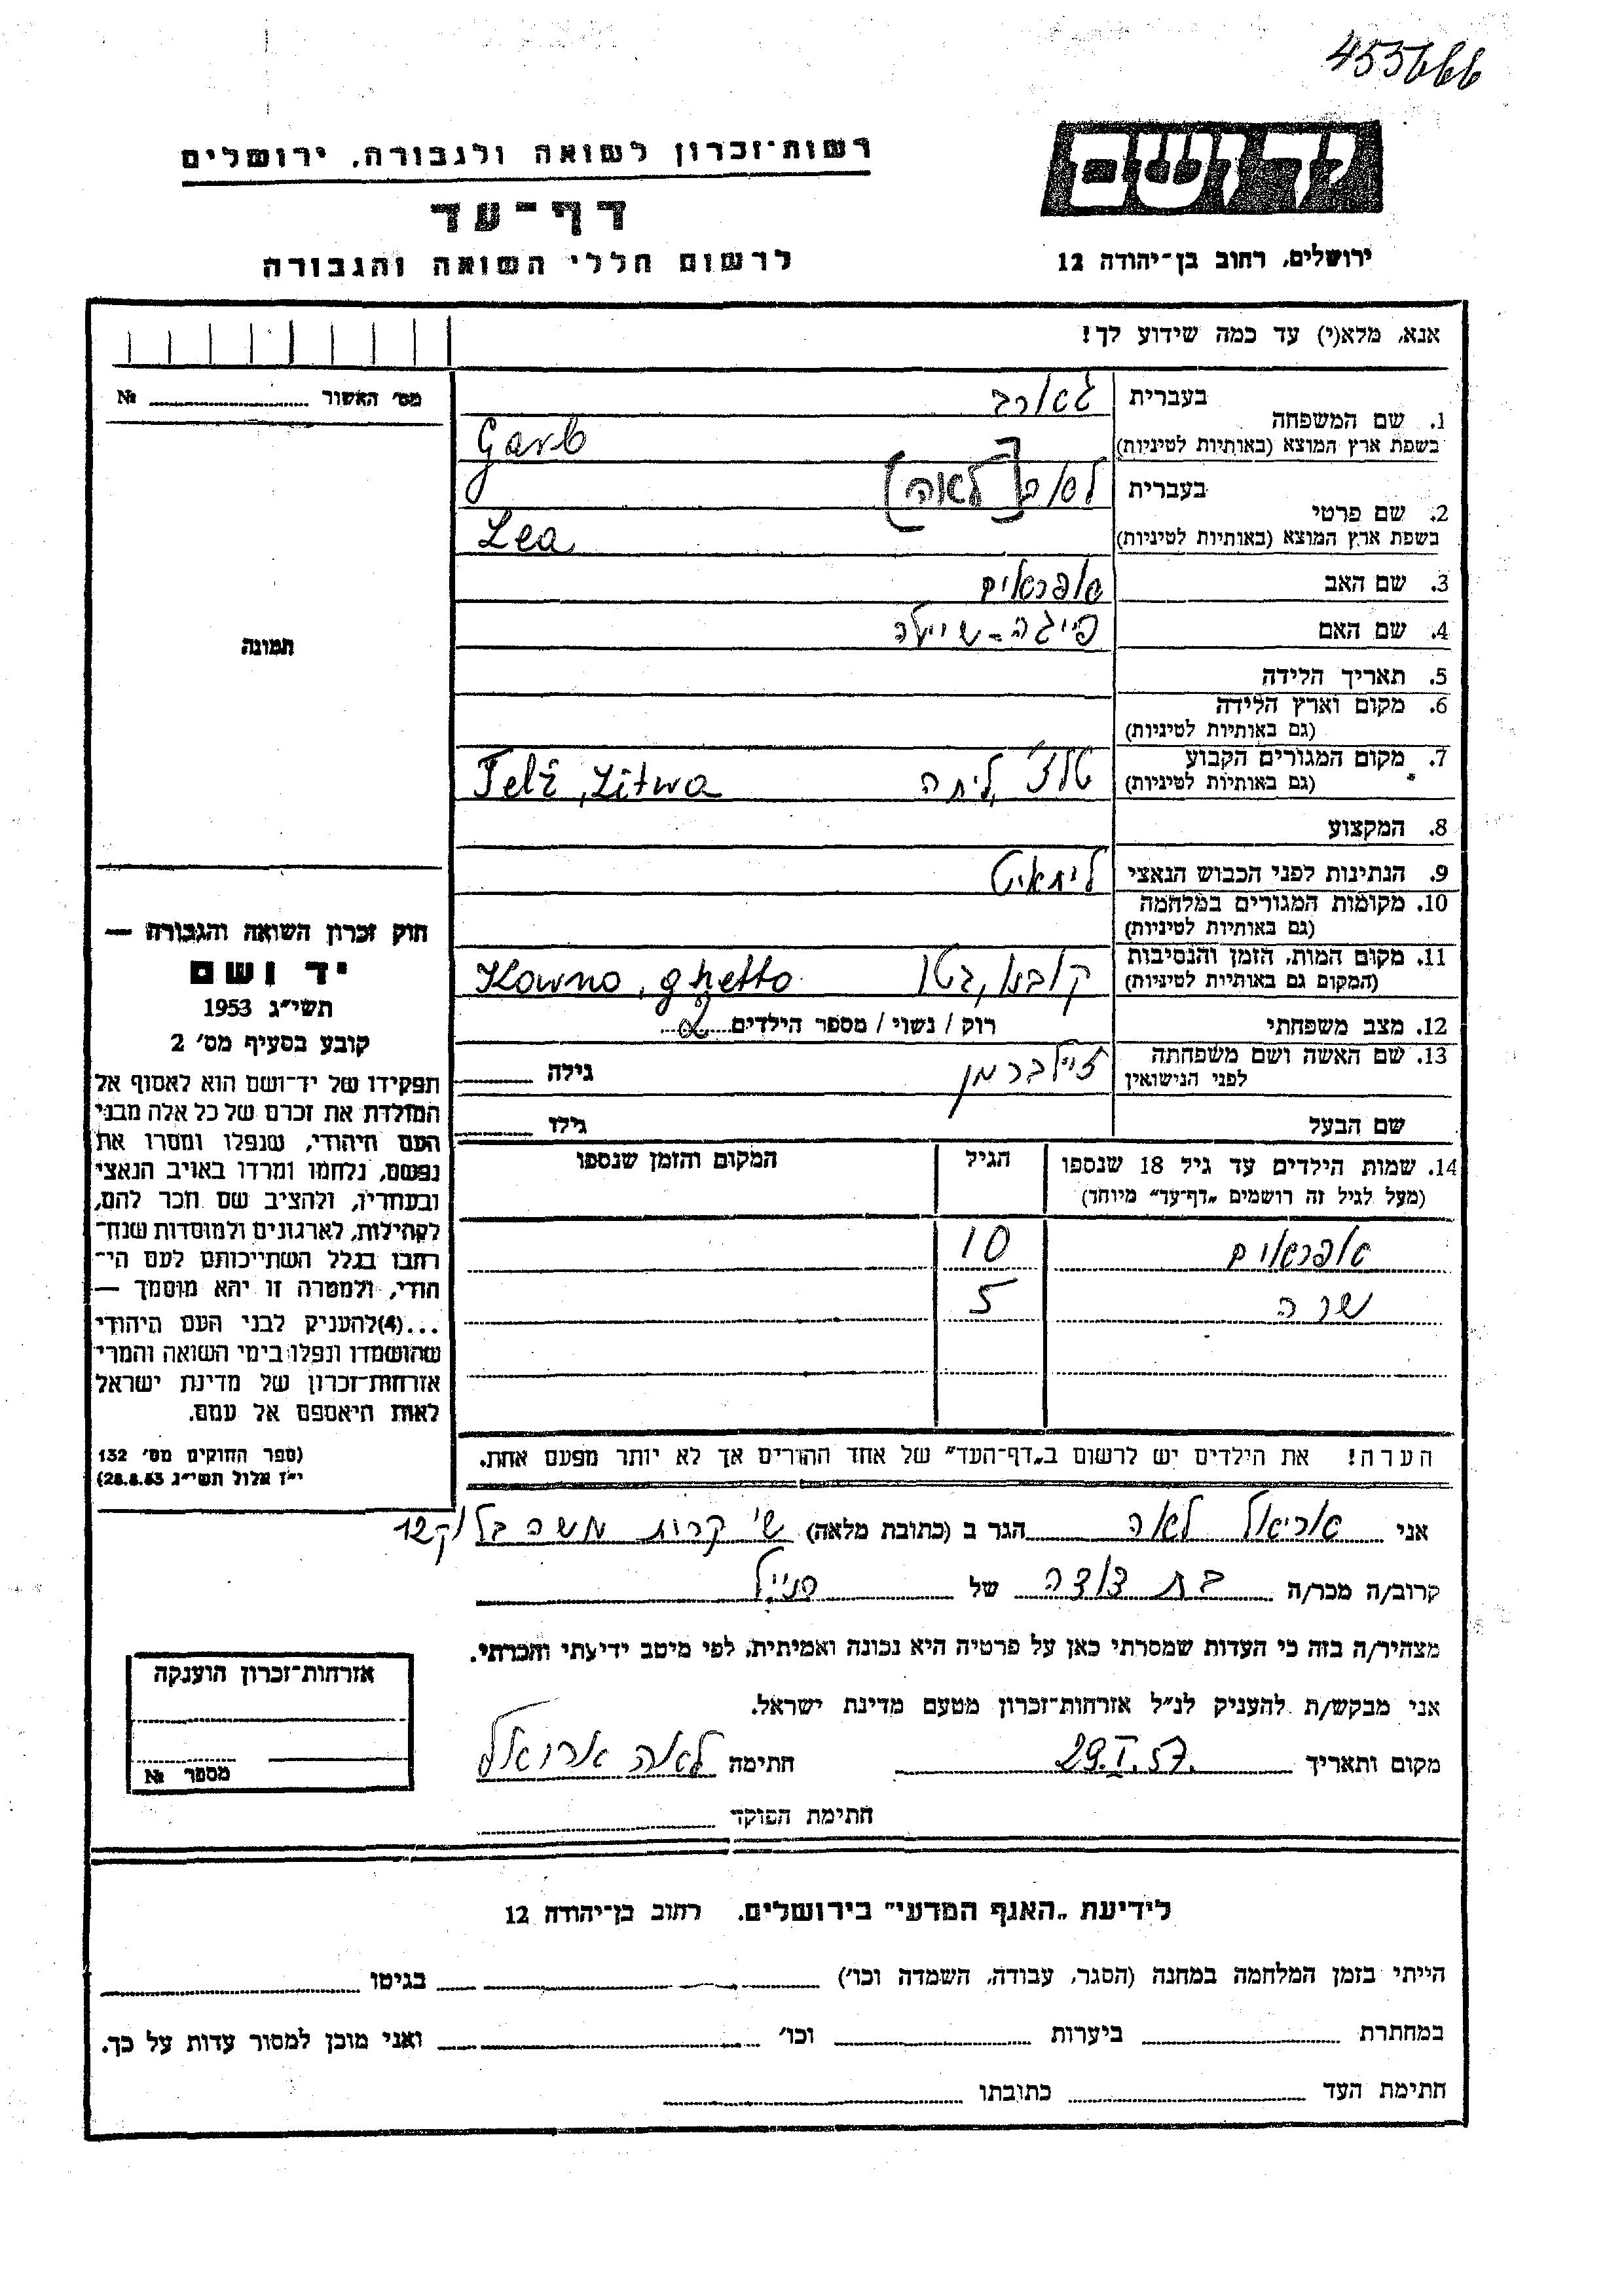 455666
רשות־זכרון לשואה ולגבורה, ירושלים
יד ושם
דף־עד
לרשום חללי השואה והגבורה
ירושלים, רחוב בן־יהודה 12
אנא, מלא(י) עד כמה שידוע לך!
מס׳ האשור № 
1. שם המשפחה
בעברית גארב
בשפת ארץ המוצא (באותיות לטיניות) Garb
2. שם פרטי
בעברית לאה [לאה]
בשפת ארץ המוצא (באותיות לטיניות) Lea
3. שם האב אפראים
4. שם האם פייגה-שיינה
5. תאריך הלידה
6. מקום וארץ הלידה
(גם באותיות לטיניות)
7. מקום המגורים הקבוע טלז׳, ליתה Telž, Litwa
(גם באותיות לטיניות)
8. המקצוע
9. הנתינות לפני הכבוש הנאצי ליתאית
10. מקומות המגורים במלחמה
(גם באותיות לטיניות)
11. מקום המות, הזמן והנסיבות קובנו, גטו Kowno, ghetto
(המקום גם באותיות לטיניות)
12. מצב משפחתי רוק / נשוי / מספר הילדים 2
13. שם האשה ושם משפחתה זילברמן גילה
לפני הנישואין
שם הבעל גילו
14. שמות הילדים עד גיל 18 שנספו הגיל המקום והזמן שנספו
(מעל לגיל זה רושמים „דף־עד״ מיוחד)
אפראים 10
שרה 5
הערה! את הילדים יש לרשום ב„דף־העד״ של אחד ההורים אך לא יותר מפעם אחת.
תמונה
חוק זכרון השואה והגבורה —
יד ושם
תשי״ג 1953
קובע בסעיף מס׳ 2
תפקידו של יד־ושם הוא לאסוף אל
המולדת את זכרם של כל אלה מבני
העם היהודי, שנפלו ומסרו את
נפשם, נלחמו ומרדו באויב הנאצי
ובעוזריו, ולהציב שם וזכר להם,
לקהילות, לארגונים ולמוסדות שנח־
רבו בגלל השתייכותם לעם הי־
הודי, ולמטרה זו יהא מוסמך —
...(4)להעניק לבני העם היהודי
שהושמדו ונפלו בימי השואה והמרי
אזרחות־זכרון של מדינת ישראל
לאות היאספם אל עמם.
(ספר החוקים מס׳ 132
י״ז אלול תשי״ג 28.8.53)
אני אריאל לאה הגר ב (כתובת מלאה) ש׳ קרית משה בלוק 12
קרוב/ה מכר/ה בת דודה של הנ״ל
מצהיר/ה בזה כי העדות שמסרתי כאן על פרטיה היא נכונה ואמיתית, לפי מיטב ידיעתי והכרתי.
אני מבקש/ת להעניק לנ״ל אזרחות־זכרון מטעם מדינת ישראל.
מקום ותאריך 29.I.57. חתימה לאה אריאל
חתימת הפוקד
אזרחות־זכרון הוענקה
מספר №
לידיעת „האגף המדעי״ בירושלים, רחוב בן־יהודה 12
הייתי בזמן המלחמה במחנה (הסגר, עבודה, השמדה וכו׳) בגיטו
במחתרת ביערות וכו׳ ואני מוכן למסור עדות על כך.
חתימת העד כתובתו